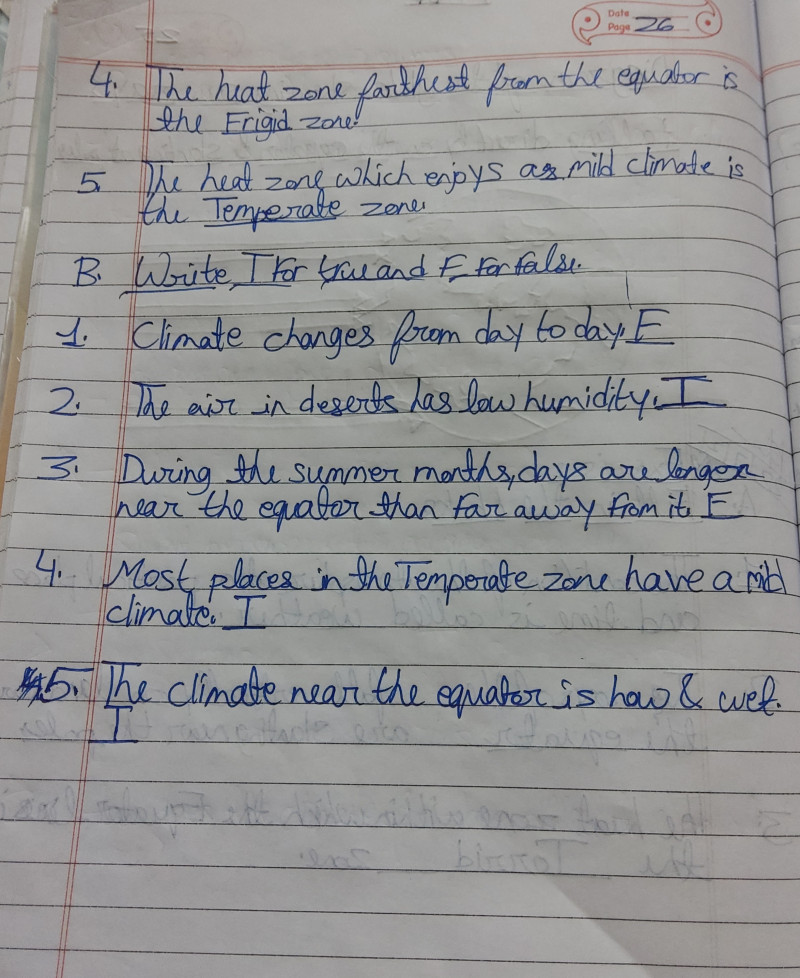 Date
Page 26
4. The heat zone farthest from the equator is
the Frigid zone.
5 The heat zone which enjoys as mild climate is
the Temperate zone.
B. Write T for true and F for false.
1. Climate changes from day to day. F
2. The air in deserts has low humidity. T
3. During the summer months, days are longer
near the equator than far away from it. F
4. Most places in the Temperate zone have a mild
climate. T
5. The climate near the equator is how & wet.
T